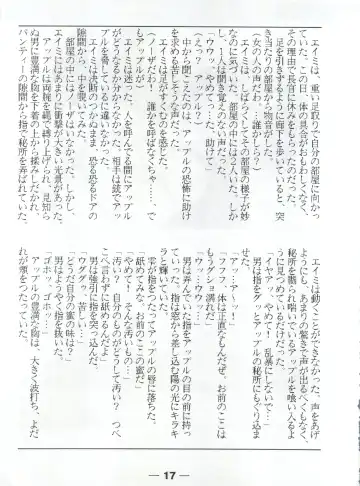 エイミは、重い足取りで自分の部屋に向かっ
ていた。この日、体の具合がおもわしくなく、
その理由で長官に休みをもらったのだった。
足を引きずるように廊下を歩いていると、突
き当たりの部屋から物音がした。
(女の人の声だわ。誰かしら?)
エイミは、しばらくしてその部屋の様子が妙
なのに気づいた。部屋の中には2人いた。しか
し、1人は聞き覚えのない声だった。
「ウッウッ、やめて…っ、助けて」
(えっ?)
中から聞こえたのは、アップルの恐怖に助け
を求める苦しそうな声だった。
エイミは足がすくむのを感じた。
(ノアザだわ! 誰かを呼ばなくちゃ…、で
もアップルが…)
エイミは迷った。人を呼んでる間にアップル
がどうなるか分からなかった。相手は銃でアッ
プルを脅しているに違いなかった。
エイミは決断のつかぬまま、恐る恐るドアの
隙間から、中を覗いてみた。
部屋の中にはノアザはいなかった。しかし、
エイミにはあまりに衝撃が大きい光景があった。
アップルは両腕を縄で縛り上げられ、見知ら
ぬ男に豊満な胸を下着の上から揉みしだかれ、
パンティーの隙間から指で秘所を弄ばれていた。
エイミは動くことができなかった。声をあげ
ようにも、あまりの驚きで声が出るべくもなく、
秘所を嬲られ喘いでいるアップルを喰い入るよ
うに見つめているだけだった。
「イヤァ、やめて! 乱暴にしないで…」
男は指をグッとアップルの秘所にもぐり込ま
せた。
「アッ、ア〜ッ!」
「フフフ、体は正直なもんだぜ。お前のここは
もうグショ濡れだ」
「ウッ…ウッ…」
男は弄んでいた指をアップルの目の前に持っ
ていった。指は窓から差し込む陽の光にキラキ
ラと輝いていた。
雫が指をつたってアップルの唇に落ちた。
「舐めてみな。お前のここの蜜だ」
「やめて! そんな汚いもの…」
「汚い? 自分のものがどうして汚い? つべ
こべ言わずに舐めるんだよ」
男は強引に指を突っ込んだ。
「ウググッ、苦しい…」
「どうだ自分の蜜の味は?」
男はようやく指を抜いた。
「ゴホッ、ゴホッ…」
アップルの豊満な胸は、大きく波打ち、よだ
れが頬をつたっていた。
— 17 —